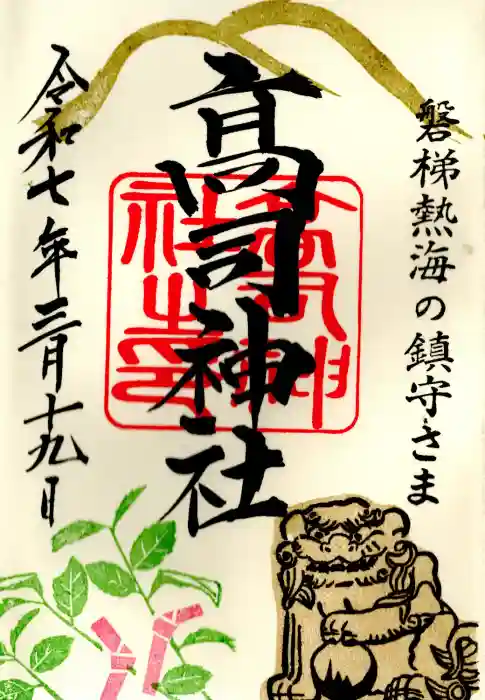 磐梯熱海の鎮守さま
高司神社
令和七年三月十九日